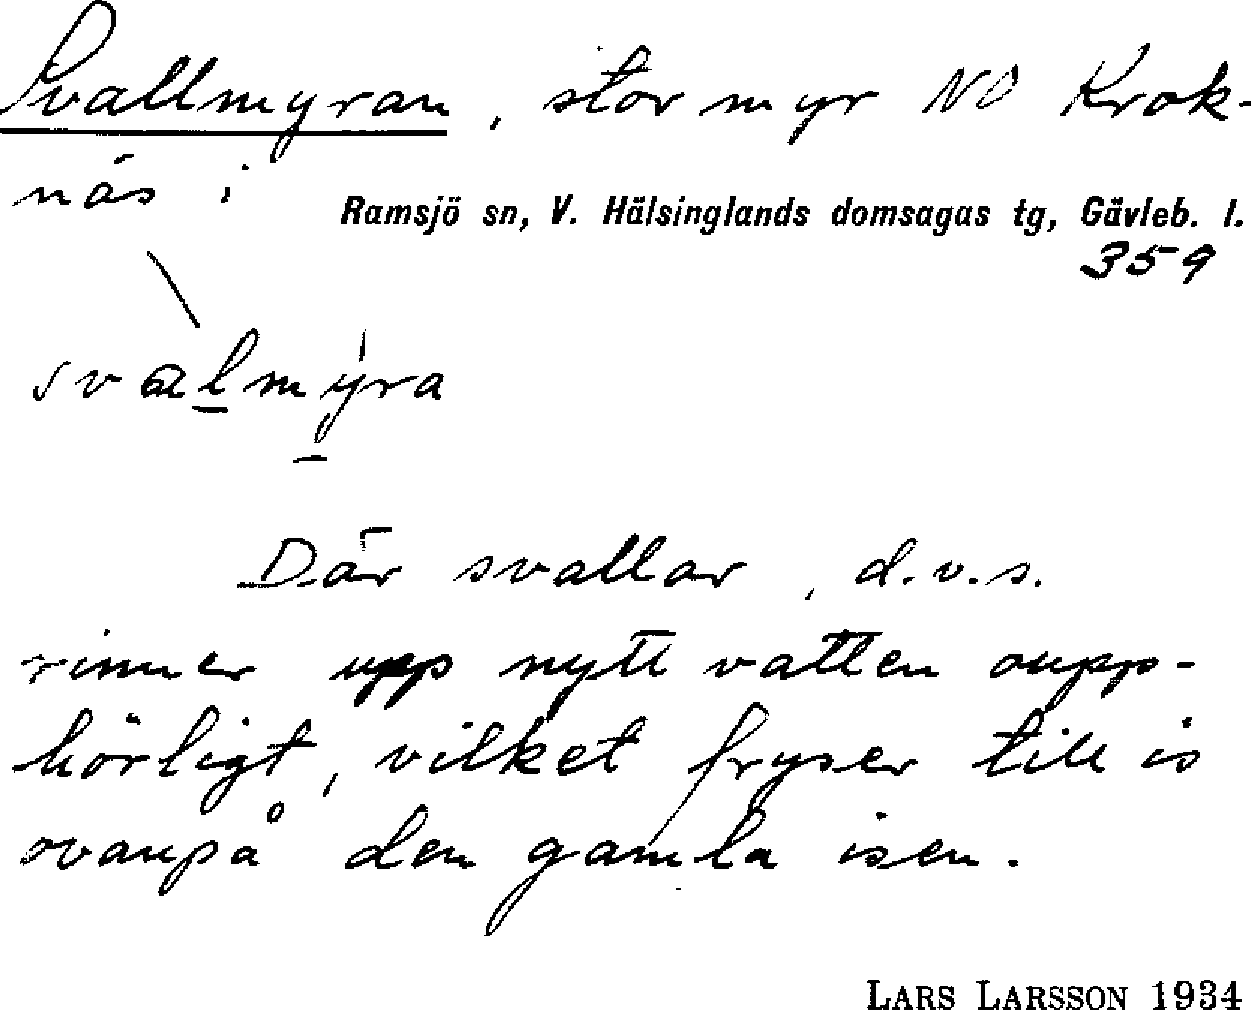 Svallmyran, stor myr NO Krok-
näs i
Ramsjö sn, V. Hälsinglands domsagas tg, Gävleb. l.
359
svalmýra
Där svallar, d.v.s.
rinner upp nytt vatten oupp-
hörligt, vilket fryser till is
ovanpå den gamla isen.
LARS LARSSON 1934